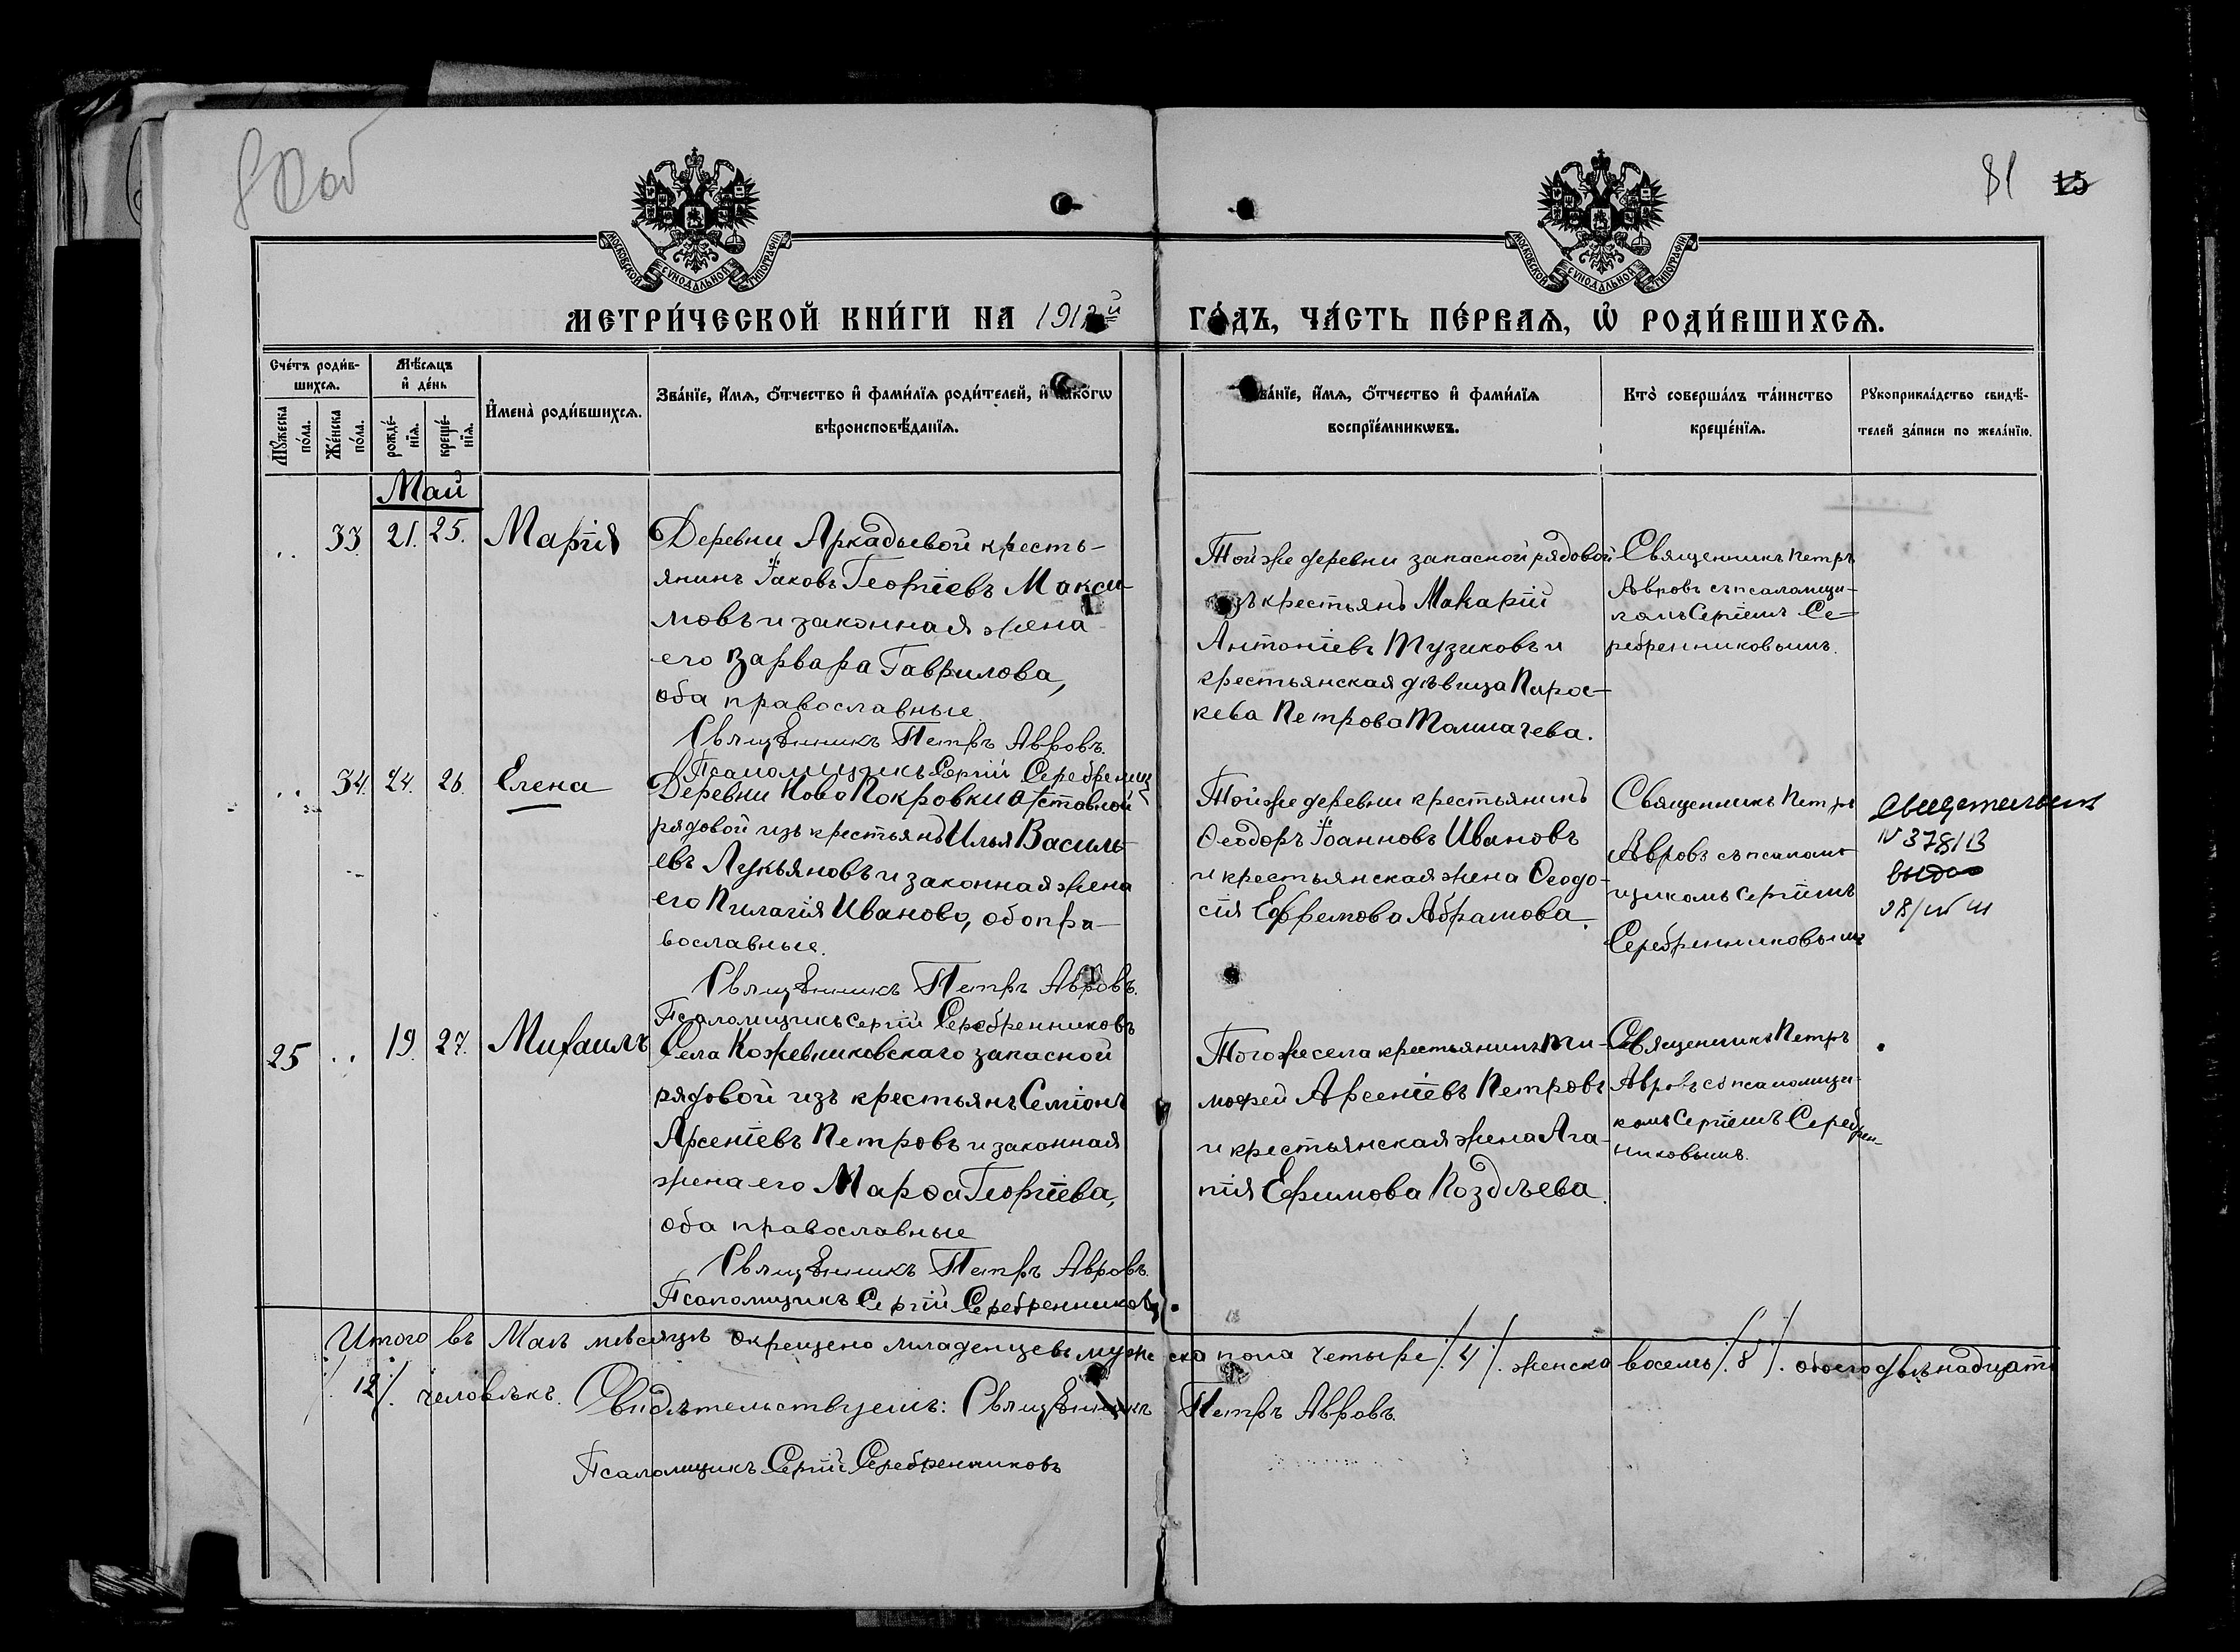 81 15
МОСКОВСКОЙ СѴНОДАЛЬНОЙ ТИПОГРАФІИ
МОСКОВСКОЙ СѴНОДАЛЬНОЙ ТИПОГРАФІИ
МЕТРИ́ЧЕСКОЙ КНИ́ГИ НА 1912й ГО́ДЪ, ЧА́СТЬ ПЕ́РВАѦ, Ѡ҆ РОДИ́ВШИХСѦ.
Сче́тъ роди́в-
шихсѧ.
Мꙋ́жеска
по́ла.
Же́нска
по́ла.
Мѣ́сѧцъ
и҆ де́нь
рожде́-
нїѧ.
креще́-
нїѧ.
И҆мена̀ роди́вшихсѧ.
Зва́нїе, и҆́мѧ, ѻ҆́тчество и҆ фами́лїѧ роди́телей, и҆ како́гѡ
вѣроисповѣ́данїѧ.
Зва́нїе, и҆́мѧ, ѻ҆́тчество и҆ фами́лїѧ
воспрїе́мникѡвъ.
Кто̀ соверша́лъ та́инство
креще́нїѧ.
Рꙋкоприкла́дство свидѣ́-
телей за́писи по жела́нїю.
Май
.. 33. 21. 25. Марія
Деревни Аркадьевой кресть-
янинъ Іаковъ Георгіевъ Макси-
мовъ и законная жена
его Варвара Гаврилова,
оба православные.
Священникъ Петръ Авровъ.
Псаломщикъ Сергій Серебренник
Той же деревни запасной рядовой
изъ крестьянъ Макарій
Антоніевъ Тузиковъ и
крестьянская дѣвица Парас-
кева Петрова Толмачева.
Священникъ Петръ
Авровъ съ псаломщи-
комъ Сергіемъ Се-
ребренниковымъ.
.. 34. 24. 26. Елена
Деревни Ново Покровки отставной
рядовой изъ крестьянъ Илья Василь-
евъ Лукьяновъ и законная жена
его Пилагія Иванова, оба пра-
вославные.
Священникъ Петръ Авровъ.
Псаломщикъ Сергій Серебренниковъ
Той же деревни крестьянинъ
Ѳеодоръ Іоанновъ Ивановъ
и крестьянская жена Ѳеодо-
сія Ефремова Абрамова.
Священникъ Петръ
Авровъ съ псалом-
щикомъ Сергіемъ
Серебренниковымъ
N 378/13
25 .. 19. 27. Михаилъ
Села Кожевниковскаго запасной
рядовой изъ крестьянъ Семіонъ
Арсеніевъ Петровъ и законная
жена его Марѳа Георгіева,
оба православные
Священникъ Петръ Авровъ.
Псаломщикъ Сергій Серебренниковъ.
Того же села крестьянинъ Ти-
моѳей Арсеніевъ Петровъ
и крестьянская жена Ага-
пія Ефимова Поздѣева.
Священникъ Петръ
Авровъ съ псаломщи-
комъ Сергіемъ Серебрен-
никовымъ.
Итого въ Маѣ мѣсяцѣ окрещено младенцевъ мужеска пола четыре /.4/. женска восемь /.8/. обоего двѣнадцать
/.12/. человѣкъ.
Свидѣтельствуемъ: Священникъ Петръ Авровъ.
Псаломщикъ Сергій Серебренниковъ